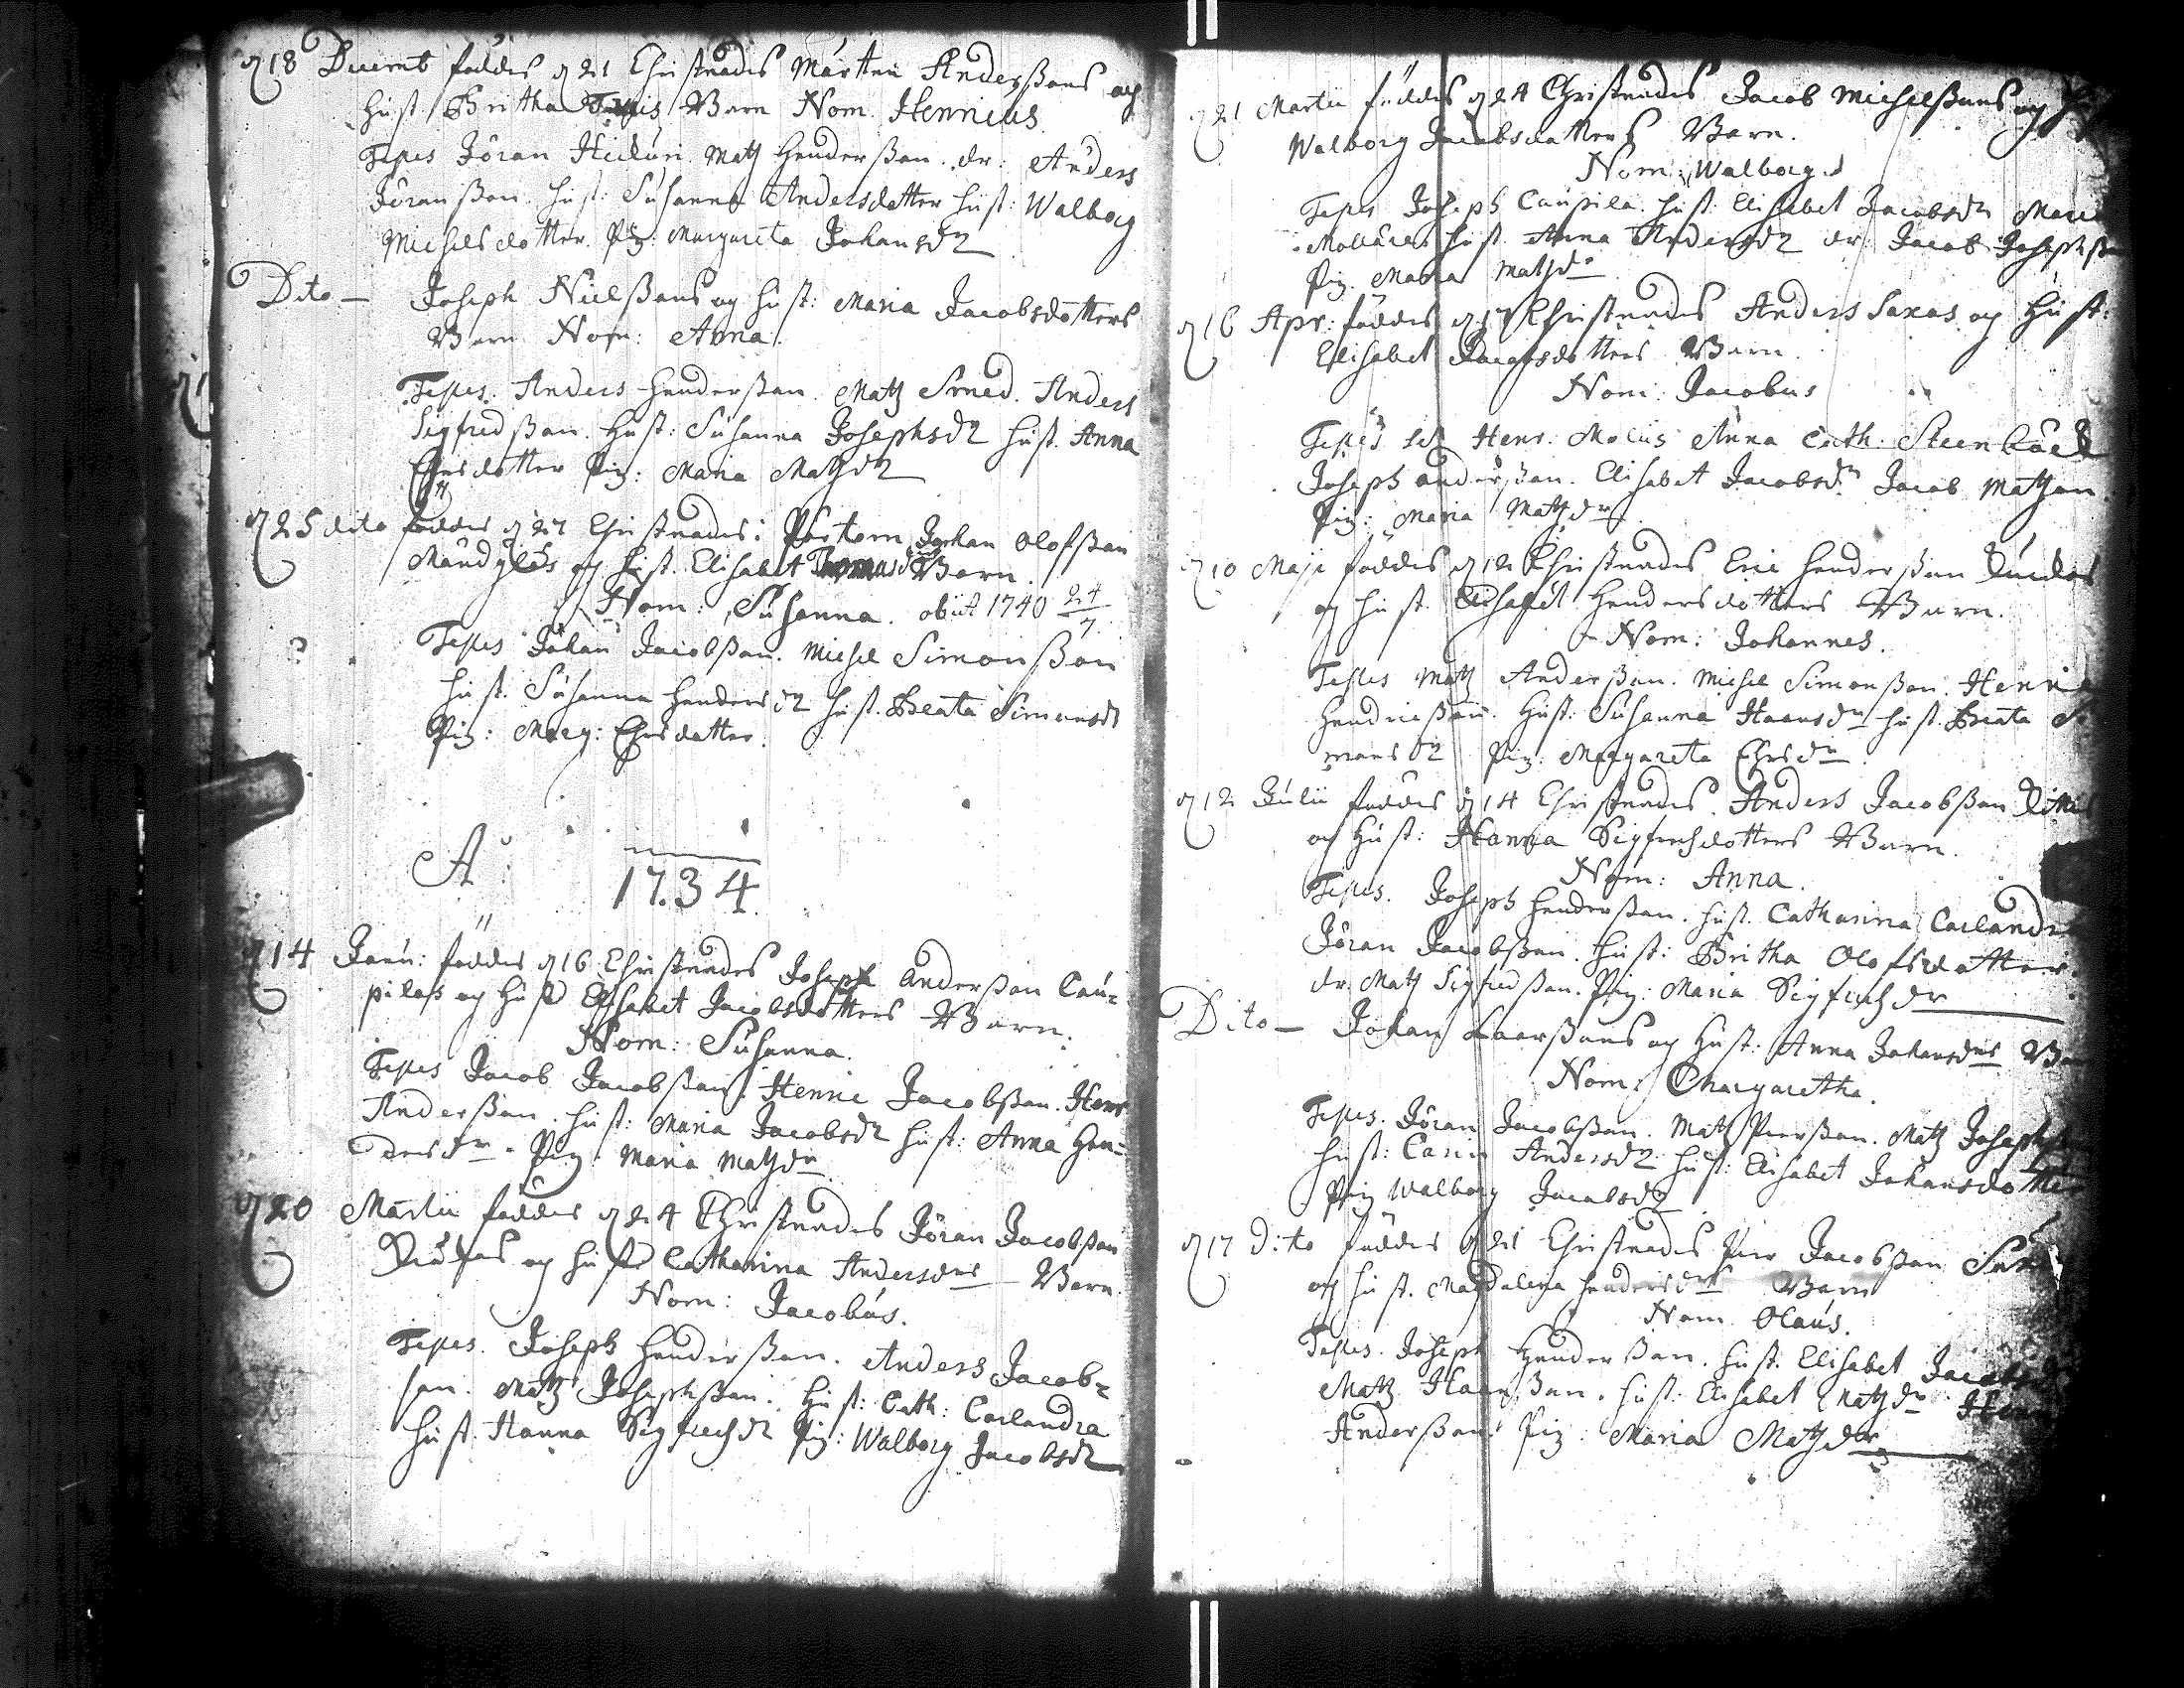 d 18 Decemb föddes d 21 Christnades Mårten Anderßons och
hust Britha Barn Nom. Henricus
Testes Jöran Matz Henderßon. dr: Anders
Jöranßon. hust: Susanna Andersdotter hust: Walborg
Michelsdotter. Pig: Margareta Johansdr
Dito — Joseph Nielßons og hust: Maria Jacobsdotters
Barn Nom: Anna.
Testes. Anders Henderßon. Matz Smed. Anders
Sigfredßon. Hust: Susanna Josephsdr hust. Anna
Ehrsdotter Pig: Maria Matzdr
d 25 dito föddes d 27 Christnades: Johan Olofßon
og hust. Elisabet Thomasdr Barn.
Nom: Susanna. obiit 1740 24/7.
Testes Johan Jacobßon. Michel Simonßon
hust. Susanna Hendersdr hust. Beata Simonsdr
Pig: Marg: Ehrsdotter.
A: 1734
d 14 Janu: föddes d 16 Christnades Joseph Anderßon Cau=
pilas og Hust Elisabet Jacobsdotters Barn.
Nom: Susanna.
Testes Jacob Jacobßon. Henric Jacobßon. Henr
Anderßon. hust: Maria Jacobsdr hust: Anna Hen=
dersdr. Pig: Maria Matzdr
d 20 Martii föddes d 24 Christnades Jöran Jacobßon
og hust Catharina Andersdrs Barn.
Nom: Jacobus.
Testes. Joseph Henderßon. Anders Jacob=
son. Matz Josephßon. Hust: Cath: Carlandra
hust. Hanna Sigfredsdr Pig: Walborg Jacobsdr
d 21 Martii föddes d 24 Christnades Jacob Michelßons og
Walborg Jacobsdotters Barn.
Nom: Walborg.
Testes Joseph Caupila. hust: Elisabet Jacobsdr
hust. Anna Andersdr dr: Jacob Josephßon
Pig. Maria Matzdr
d 16 Apr: föddes d 17 Christnades Anders Saxas og Hust:
Elisabet Jacobsdotters Barn.
Nom: Jacobus
Testes Henr. Molius Anna Cath. Steenbäck
Joseph Anderßon. Elisabet Jacobsdr Jacob Matzon.
Pig: Maria Matzdr
d 10 Maji föddes d 12 Christnades Eric Henderßon
og hust. Elisabet Hendersdotters Barn.
Nom: Johannes.
Testes Matz Anderßon. Michel Simonßon. Henric
Hendricßon. Hust: Susanna Hansdr hust. Beata Si
monsdr Pig: Margareta Ehrsdr
d 12 Julii föddes d 14 Christnades. Anders Jacobßon
og Hust: Hanna Sigfredsdotters Barn.
Nom: Anna.
Testes. Joseph Henderßon. hust. Catharina Carlandra
Jöran Jacobßon. Hust: Britha Olofsdotter.
dr. Matz Sigfredßon. Pig: Maria Sigfredsdr
Dito — Johan Laarßons og Hust: Anna Johansdrs Barn
Nom: Margaretha.
Testes. Jöran Jacobßon. Matz Pierßon. Matz Joseph
hust: Carin Andersdr hust: Elisabet Johansdotter
Pig Walborg Jacobsdr
d 17 Dito föddes d 21 Christnades Pier Jacobßon
og hust. Magdalena Hendersdrs Barn
Nom Olaus.
Testes. Joseph Henderßon. hust. Elisabet Jacobsdr
Matz Hanßon. hust: Elisabet Matzdr Henr
Anderßon. Pig: Maria Matzdr